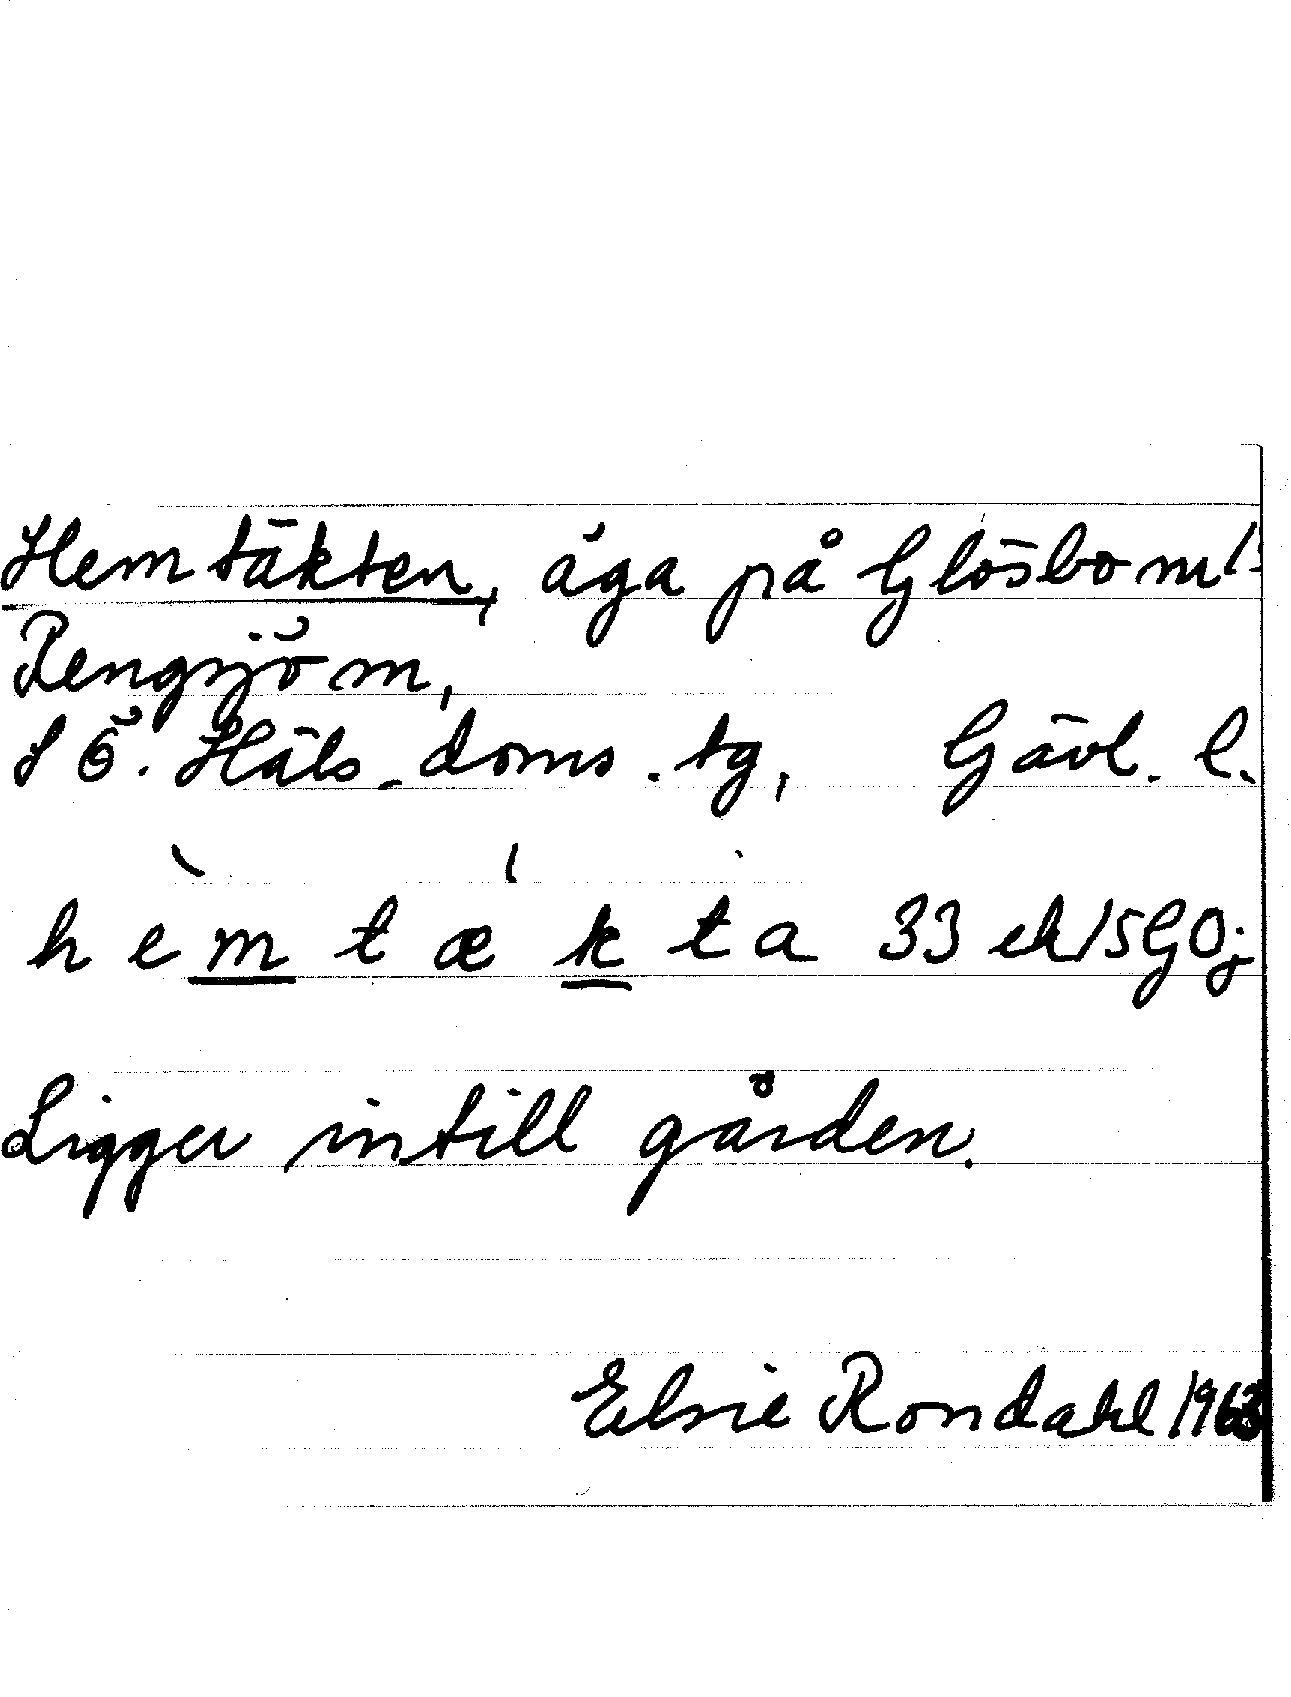 Hemtäkten, äga på Glösbo m 1:
Rengsjö sn,
S Ö. Häls. doms. tg, Gävl. l.
hèmtækta 33 ek15GOj
Ligger intill gården.
Elsie Rondahl 1963